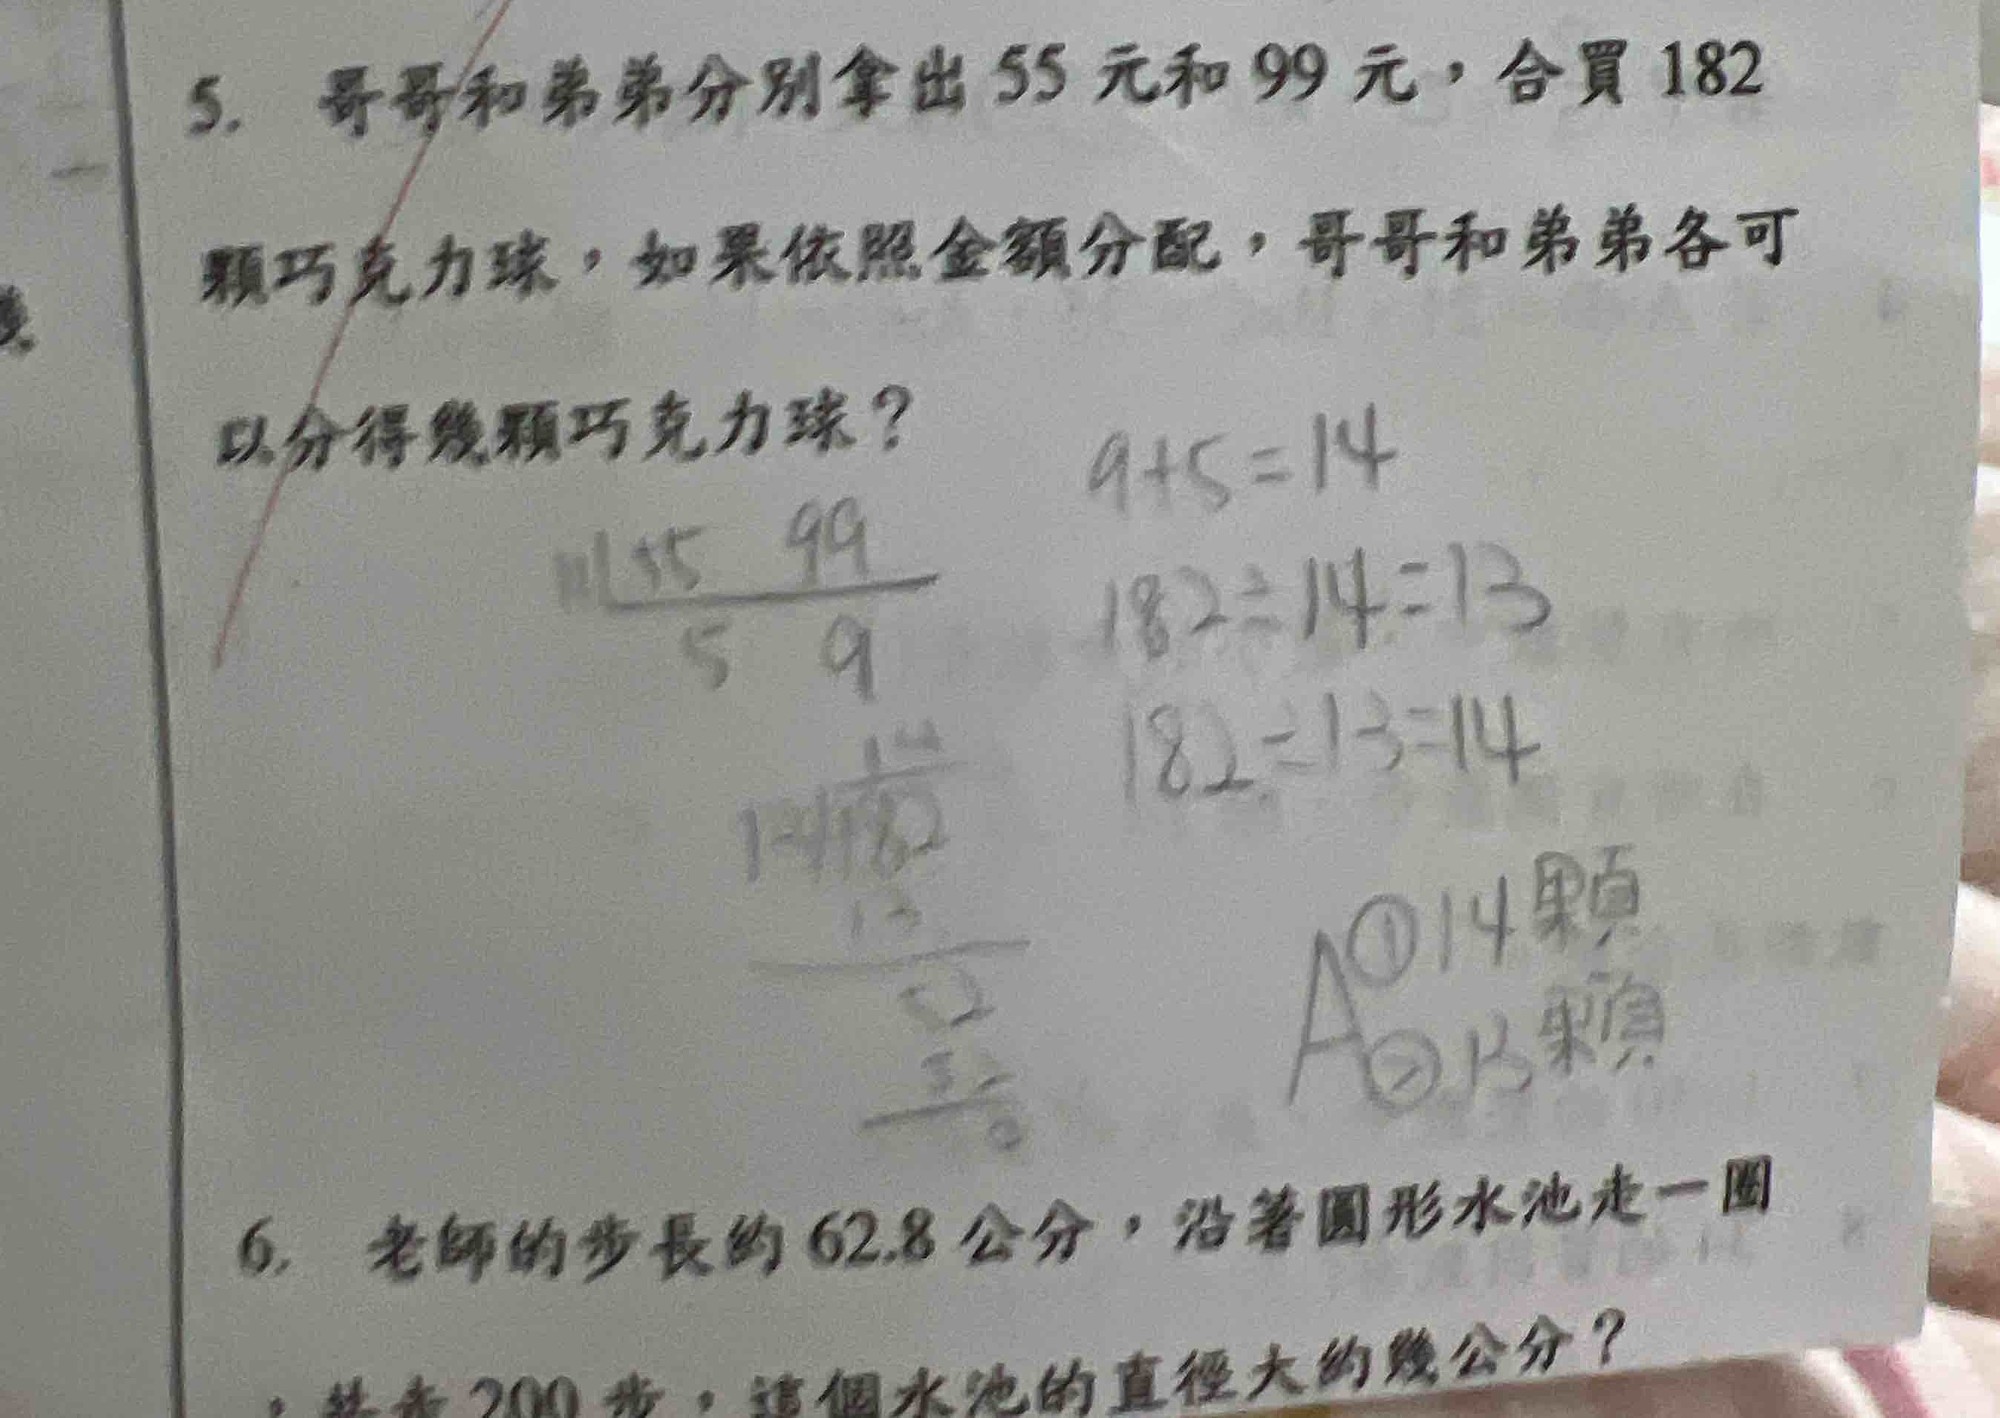 5. 哥哥和弟弟分別拿出 55 元和 99 元，合買 182
顆巧克力球，如果依照金額分配，哥哥和弟弟各可
以分得幾顆巧克力球？
9+5=14
11 55 99
5 9
182÷14=13
182÷13=14
14
13 182
13
52
52
0
A ① 14顆
② 13顆
6. 老師的步長約 62.8 公分，沿著圓形水池走一圈
，共走 200 步，這個水池的直徑大約幾公分？